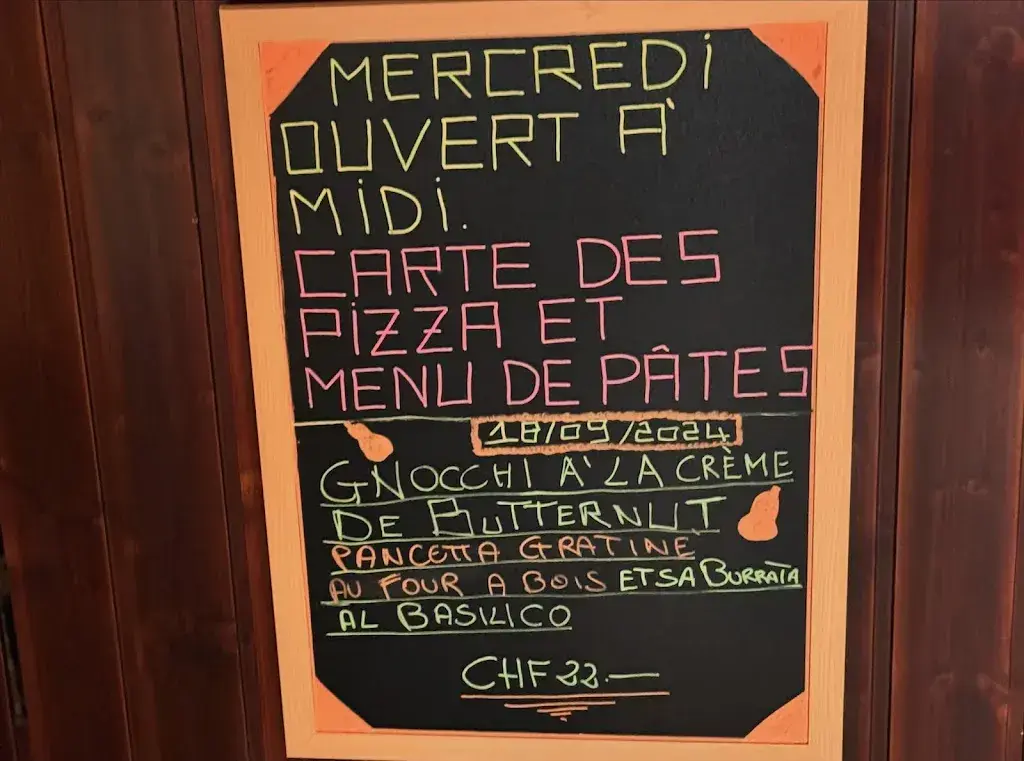 MERCREDI
OUVERT À
MIDI.
CARTE DES
PIZZA ET
MENU DE PÂTES
18/09/2024
GNOCCHI À LA CRÈME
DE BUTTERNUT
PANCETTA GRATINE
AU FOUR A BOIS ET SA BURRATA
AL BASILICO
CHF 22.—